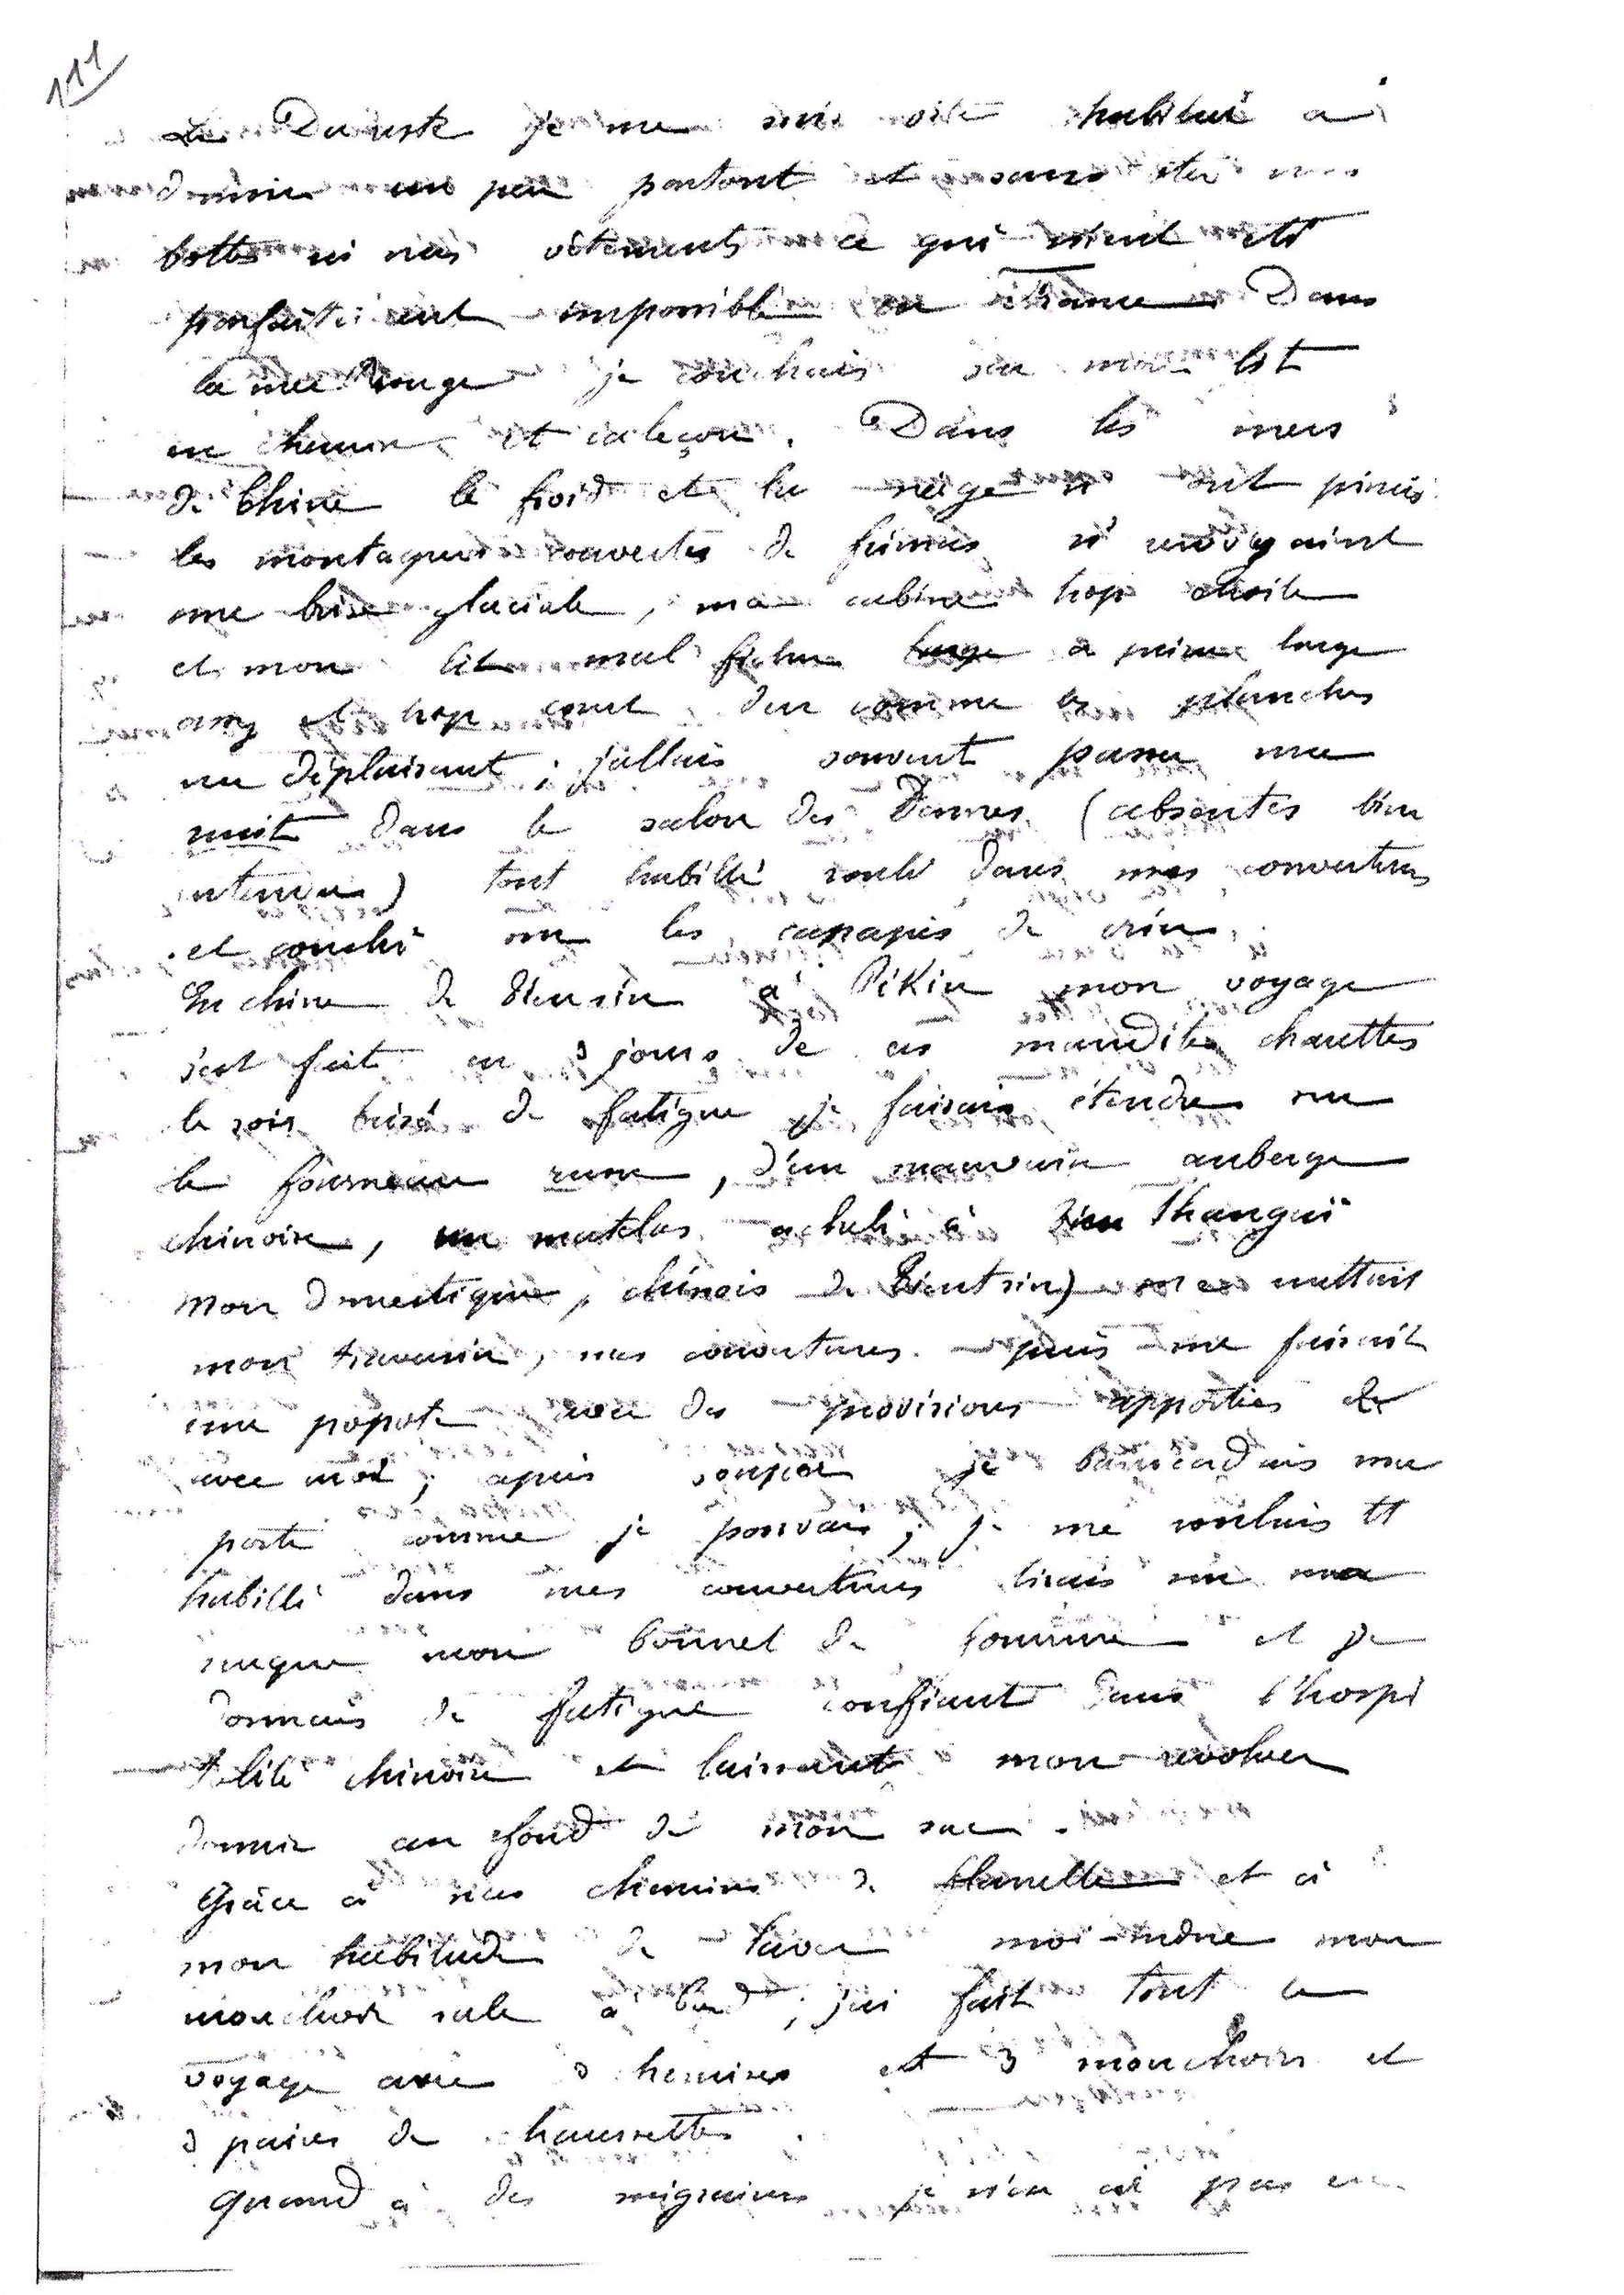 111
Du reste je me suis vite habitué a
dormir un peu partout et sans oter mes
bottes ni mes vêtements ce qui m'eut été
parfaitement impossible en France Dans
la mer Rouge je couchais sur mon lit
en chemise et caleçon. Dans les mers
de Chine le froid et la neige m'ont pincés
les montagnes couvertes de frimas m'envoyaient
une brise glaciale, ma cabine trop étroite
et mon lit mal fichu large a peine large
assez et trop court dur comme les planches
me déplaisant; j'allais souvent passer ma
nuit dans le salon des Dames (absentes bien
entendu) tout habillé roulé dans mes couvertures
et couché sur les canapés de crin.
En chine de Tien sin à Pékin mon voyage
s'est fait en 3 jours de ces maudites charettes
le soir brisé de fatigue je faisais étendre sur
le fourneau, d'une mauvaise auberge
chinoise, un matelas acheté à Tien Thangui
mon domestique, chinois de Tientsin) me mettait
mon traversin, mes couvertures puis me faisait
une popote avec des provisions apportées de
avec moi; après souper je barricadais ma
porte comme je pouvais; je me roulais tt
habillé dans mes couvertures tirais sur ma
nuque mon bonnet de fourrure et je
dormais de fatigue confiant dans l'hospi
talité chinoise et laissant mon revolver
dormir au fond de mon sac.
Grâce à mes chemises de flanelle et à
mon habitude de laver moi-même mon
mouchoir sale à bord; j'ai fait tout le
voyage avec 3 chemises et 3 mouchoirs et
3 paires de chaussettes.
Quand à des migraines je n'en ai pas eu